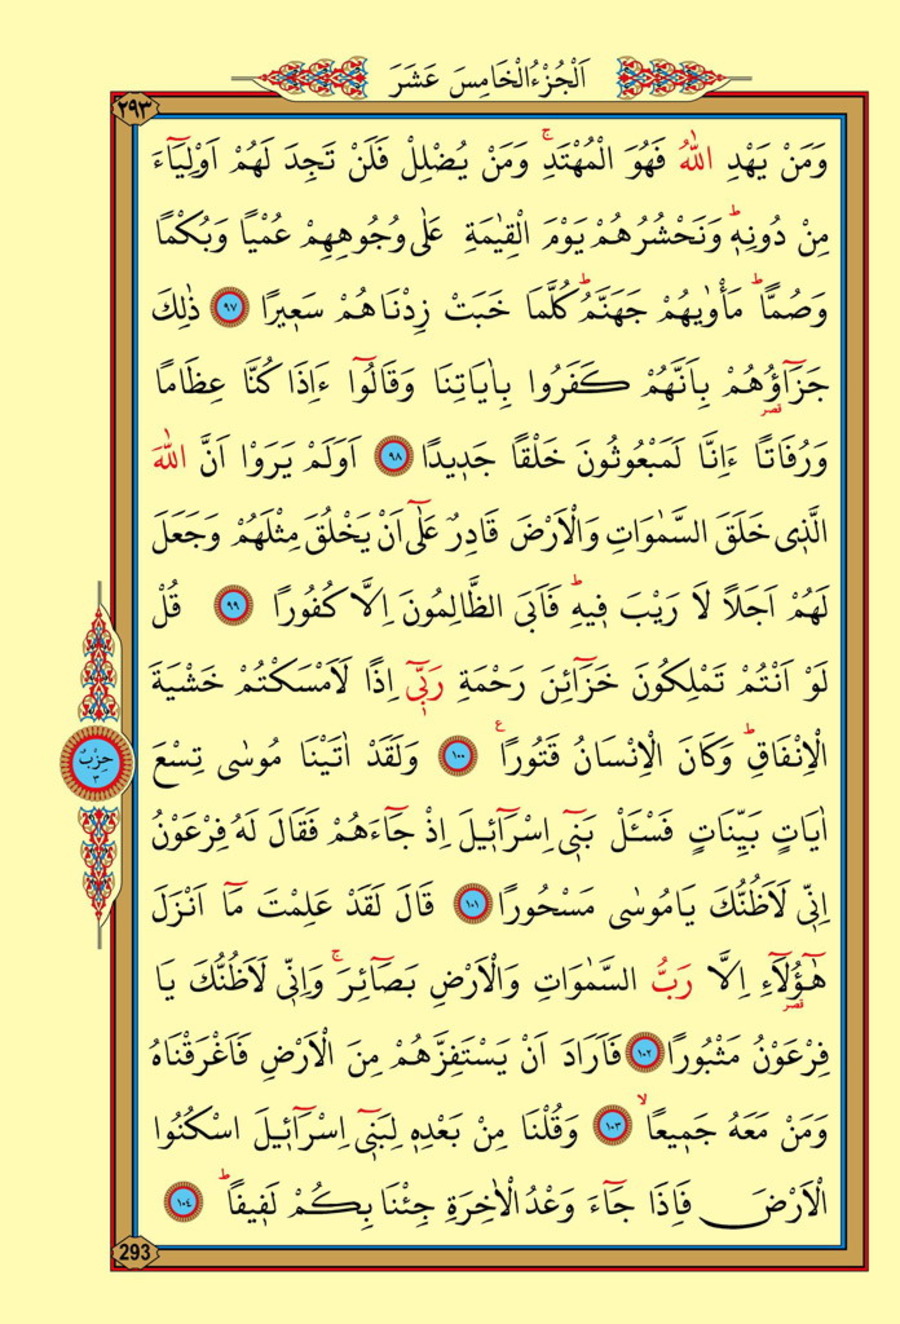 اَلْجُزْءُ الْخَامِسَ عَشَرَ
٢٩٣
وَمَنْ يَهْدِ اللّٰهُ فَهُوَ الْمُهْتَدِۚ وَمَنْ يُضْلِلْ فَلَنْ تَجِدَ لَهُمْ اَوْلِيَٓاءَ
مِنْ دُونِه۪ۜ وَنَحْشُرُهُمْ يَوْمَ الْقِيٰمَةِ عَلٰى وُجُوهِهِمْ عُمْيًا وَبُكْمًا
وَصُمًّاۜ مَأْوٰيهُمْ جَهَنَّمُۜ كُلَّمَا خَبَتْ زِدْنَاهُمْ سَع۪يرًا ﴿٩٧﴾ ذٰلِكَ
جَزَٓاؤُ۬هُمْ بِاَنَّهُمْ كَفَرُوا بِاٰيَاتِنَا وَقَالُٓوا ءَاِذَا كُنَّا عِظَامًا
قصر
وَرُفَاتًا ءَاِنَّا لَمَبْعُوثُونَ خَلْقًا جَد۪يدًا ﴿٩٨﴾ اَوَلَمْ يَرَوْا اَنَّ اللّٰهَ
الَّذ۪ى خَلَقَ السَّمٰوَاتِ وَالْاَرْضَ قَادِرٌ عَلٰٓى اَنْ يَخْلُقَ مِثْلَهُمْ وَجَعَلَ
لَهُمْ اَجَلًا لَا رَيْبَ ف۪يهِۜ فَاَبَى الظَّالِمُونَ اِلَّا كُفُورًا ﴿٩٩﴾ قُلْ
لَوْ اَنْتُمْ تَمْلِكُونَ خَزَٓائِنَ رَحْمَةِ رَبّ۪ٓى اِذًا لَاَمْسَكْتُمْ خَشْيَةَ
الْاِنْفَاقِۜ وَكَانَ الْاِنْسَانُ قَتُورًا۟ ﴿١٠٠﴾ وَلَقَدْ اٰتَيْنَا مُوسٰى تِسْعَ
حِزْبٌ
٣
اٰيَاتٍ بَيِّنَاتٍ فَسْـَٔلْ بَن۪ٓى اِسْرَٓائ۪يلَ اِذْ جَٓاءَهُمْ فَقَالَ لَهُ فِرْعَوْنُ
اِنّ۪ى لَاَظُنُّكَ يَامُوسٰى مَسْحُورًا ﴿١٠١﴾ قَالَ لَقَدْ عَلِمْتَ مَٓا اَنْزَلَ
هٰٓؤُ۬لَٓاءِ اِلَّا رَبُّ السَّمٰوَاتِ وَالْاَرْضِ بَصَٓائِرَۚ وَاِنّ۪ى لَاَظُنُّكَ يَا
قصر
فِرْعَوْنُ مَثْبُورًا ﴿١٠٢﴾ فَاَرَادَ اَنْ يَسْتَفِزَّهُمْ مِنَ الْاَرْضِ فَاَغْرَقْنَاهُ
وَمَنْ مَعَهُ جَم۪يعًاۙ ﴿١٠٣﴾ وَقُلْنَا مِنْ بَعْدِه۪ لِبَن۪ٓى اِسْرَٓائ۪يلَ اسْكُنُوا
الْاَرْضَ فَاِذَا جَٓاءَ وَعْدُ الْاٰخِرَةِ جِئْنَا بِكُمْ لَف۪يفًاۜ ﴿١٠٤﴾
293